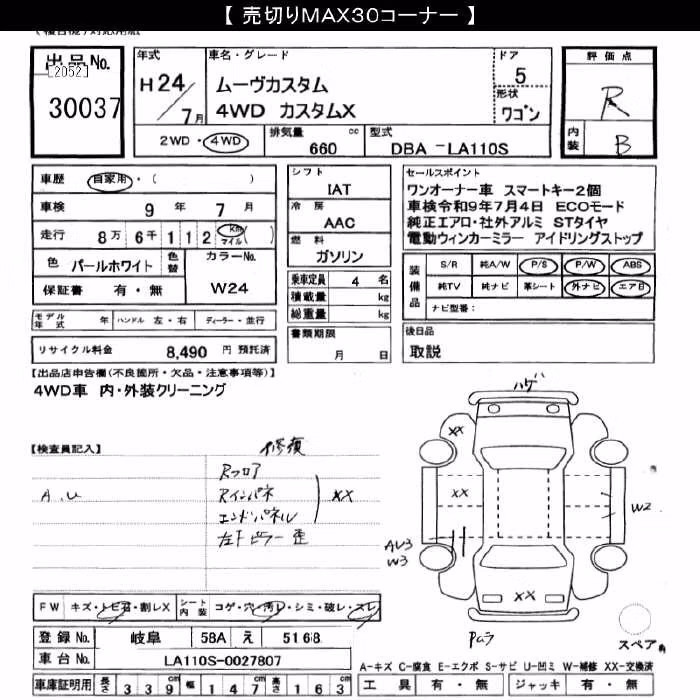 【 売切りMAX30コーナー 】
出品No.
[2052]
30037
年式
H24/7月
車名・グレード
ムーヴカスタム
4WD カスタムX
ドア
5
形状
ワゴン
2WD・4WD
排気量 660 cc
型式 DBA -LA110S
評価点
R
内装
B
車歴 自家用・( )
車検 9 年 7 月
走行 8万 6千 1 1 2 Km マイル
色 パールホワイト 色替 カラーNo.
保証書 有・無 W24
シフト
IAT
冷房
AAC
燃料
ガソリン
乗車定員 4 名
積載量 kg
総重量 kg
書類期限
月 日
セールスポイント
ワンオーナー車 スマートキー2個
車検令和9年7月4日 ECOモード
純正エアロ・社外アルミ STタイヤ
電動ウィンカーミラー アイドリングストップ
装備品
S/R 純A/W P/S P/W ABS
純TV 純ナビ 革シート 外ナビ エアB
ナビ型番:
モデル年式 年 ハンドル 左・右 ディーラー・並行
リサイクル料金 8,490 円 預託済
後日品
取説
【出品店申告欄(不良箇所・欠品・注意事項等)】
4WD車 内・外装クリーニング
【検査員記入】
修復
A.U
Rフロア
Rインパネ
エンドパネル
XX
左Fピラー 歪
ハゲ
XX
XX
W2
AU3
W3
XX
スペア
FW キズ・トビ石・割レX
シート内装 コゲ・穴・汚レ・シミ・破レ・スレ
登録No. 岐阜 58A え 5168
車台No. LA110S-0027807
A-キズ C-腐食 E-エクボ S-サビ U-凹ミ W-補修 XX-交換済
車庫証明用 長さ 339cm 幅 147cm 高さ 163cm
工具 有・無 ジャッキ 有・無